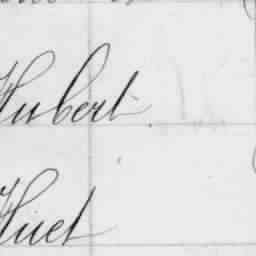 Hubert
Huet